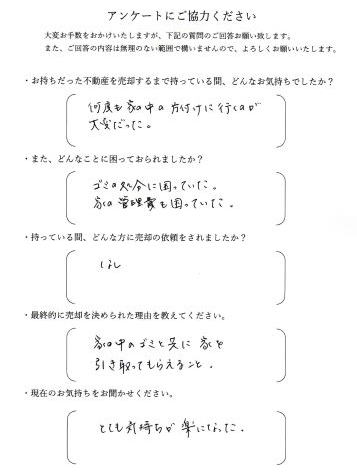 アンケートにご協力ください
大変お手数をおかけいたしますが、下記の質問のご回答お願い致します。
また、ご回答の内容は無理のない範囲で構いませんので、よろしくお願いいたします。
・お持ちだった不動産を売却するまで持っている間、どんなお気持ちでしたか？
何度も家の中の片付けに行くのが
大変だった。
・また、どんなことに困っておられましたか？
ゴミの処分に困っていた。
家の管理費も困っていた。
・持っている間、どんな方に売却の依頼をされましたか？
なし
・最終的に売却を決められた理由を教えてください。
家の中のゴミと共に家を
引き取ってもらえること。
・現在のお気持ちをお聞かせください。
とても気持ちが楽になった。